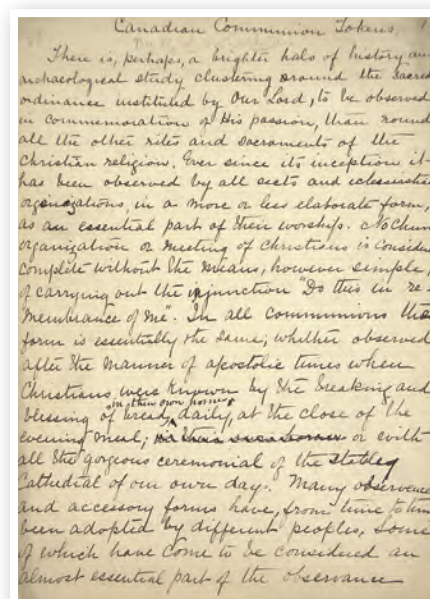 Canadian Communion Tokens. 1
There is, perhaps, a brighter halo of history an
archaeological study clustering around the Sacred
ordinance instituted by Our Lord, to be observed
in commemoration of His passion, than round
all the other rites and sacraments of the
Christian religion. Ever since its inception it
has been observed by all sects and
organizations, in a more or less elaborate form,
as an essential part of their worship. No chur
organization or meeting of Christians is consider
complete without the means, however simple,
of carrying out the injunction "Do this in re-
membrance of me". In all communions the
form is essentially the same; whether observed
after the manner of apostolic times when
Christians were known by the breaking and
in their own homes
blessing of bread, daily, at the close of the
evening meal; or with
all the gorgeous ceremonial of the stately
Cathedral of our own day. Many observence
and accessory forms have, from time to tim
been adopted by different peoples, some
of which have come to be considered an
almost essential part of the observance